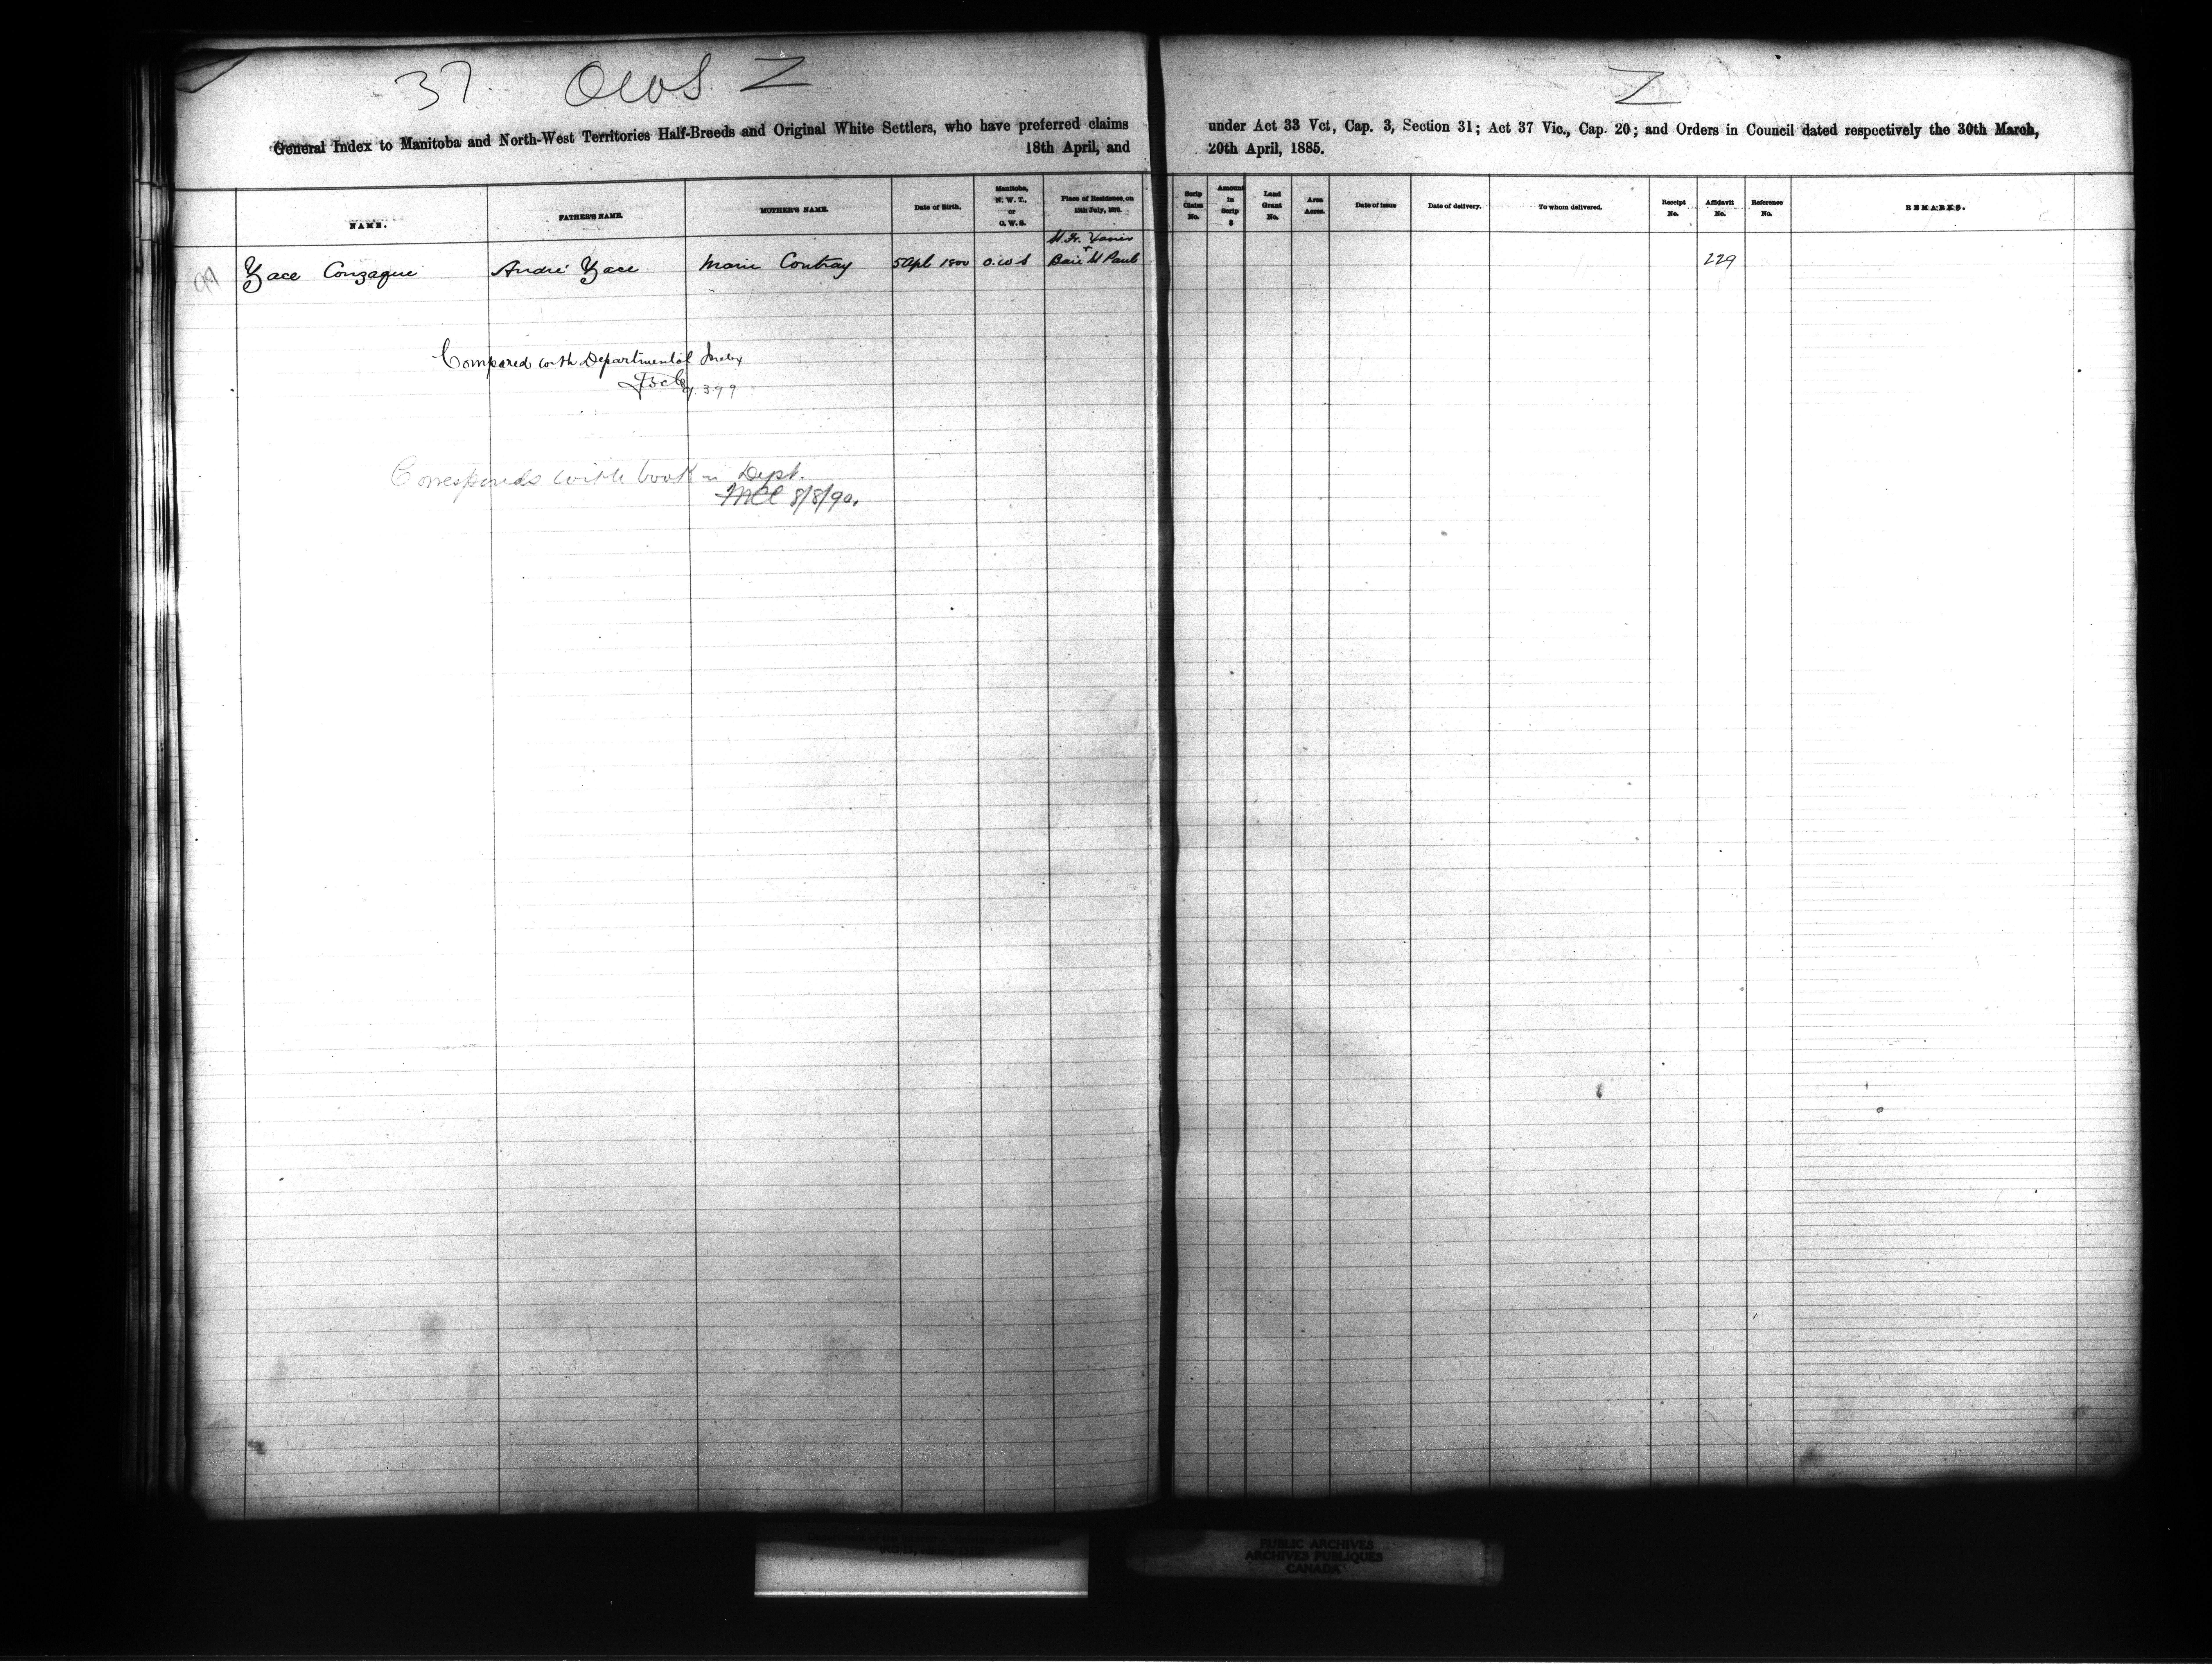 37. OWS Z
Z
General Index to Manitoba and North-West Territories Half-Breeds and Original White Settlers, who have preferred claims
18th April, and
under Act 33 Vct, Cap. 3, Section 31; Act 37 Vic., Cap. 20; and Orders in Council dated respectively the 30th March,
20th April, 1885.
NAME. FATHER'S NAME. MOTHER'S NAME. Date of Birth. Manitoba, N. W. T., or O. W. S. Place of Residence, on 15th July, 1870. Scrip Claim No. Amount in Scrip $ Land Grant No. Area Acres. Date of Issue Date of delivery. To whom delivered. Receipt No. Affidavit No. Reference No. REMARKS.
St. Fr. Xavier
+
Zace Conzague André Zace Marie Contray 5 Apl 1800 O.W.S Baie St Paul 229
Compared with Departmental Index
399
Corresponds with book in Dept.
8/8/90.
PUBLIC ARCHIVES
ARCHIVES PUBLIQUES
CANADA